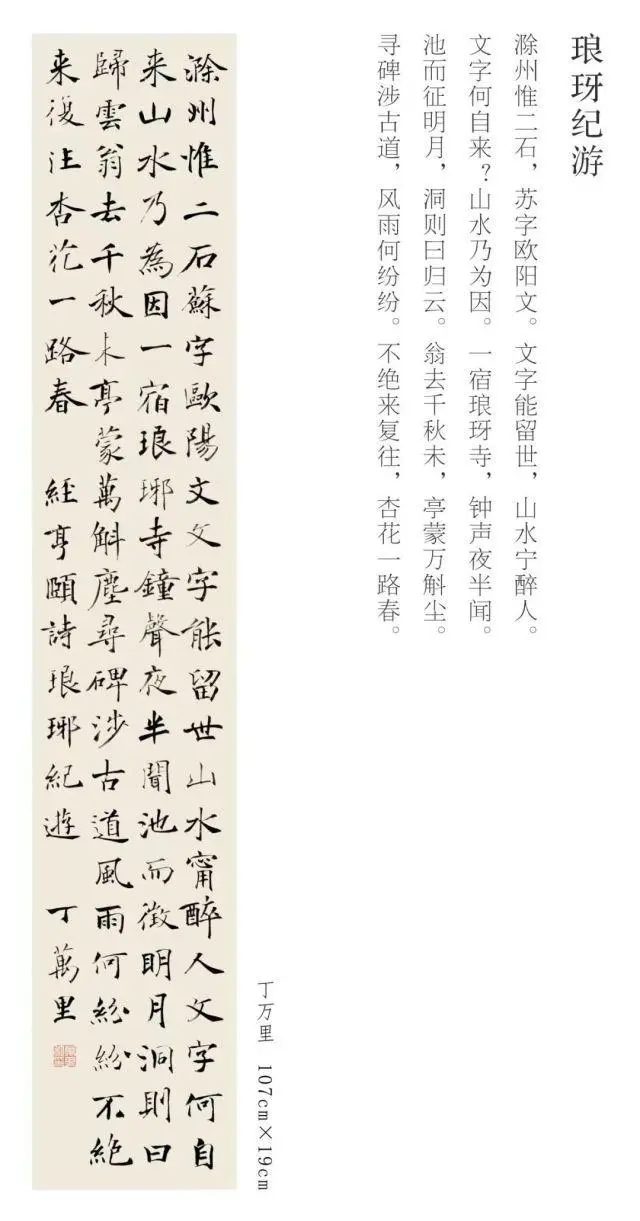 琅玡纪游
滁州惟二石，苏字欧阳文。文字能留世，山水宁醉人。
文字何自来？山水乃为因。一宿琅玡寺，钟声夜半闻。
池而征明月，洞则曰归云。翁去千秋未，亭蒙万斛尘。
寻碑涉古道，风雨何纷纷。不绝来复往，杏花一路春。
丁万里 107cm×19cm
滁州惟二石蘇字歐陽文文字能留世山水甯醉人文字何自
来山水乃為因一宿琅琊寺鐘聲夜半聞池而徵明月洞則曰
歸雲翁去千秋未亭蒙萬斛塵尋碑涉古道風雨何紛紛不絶
来復往杏花一路春 經亨頤詩琅琊紀遊 丁萬里